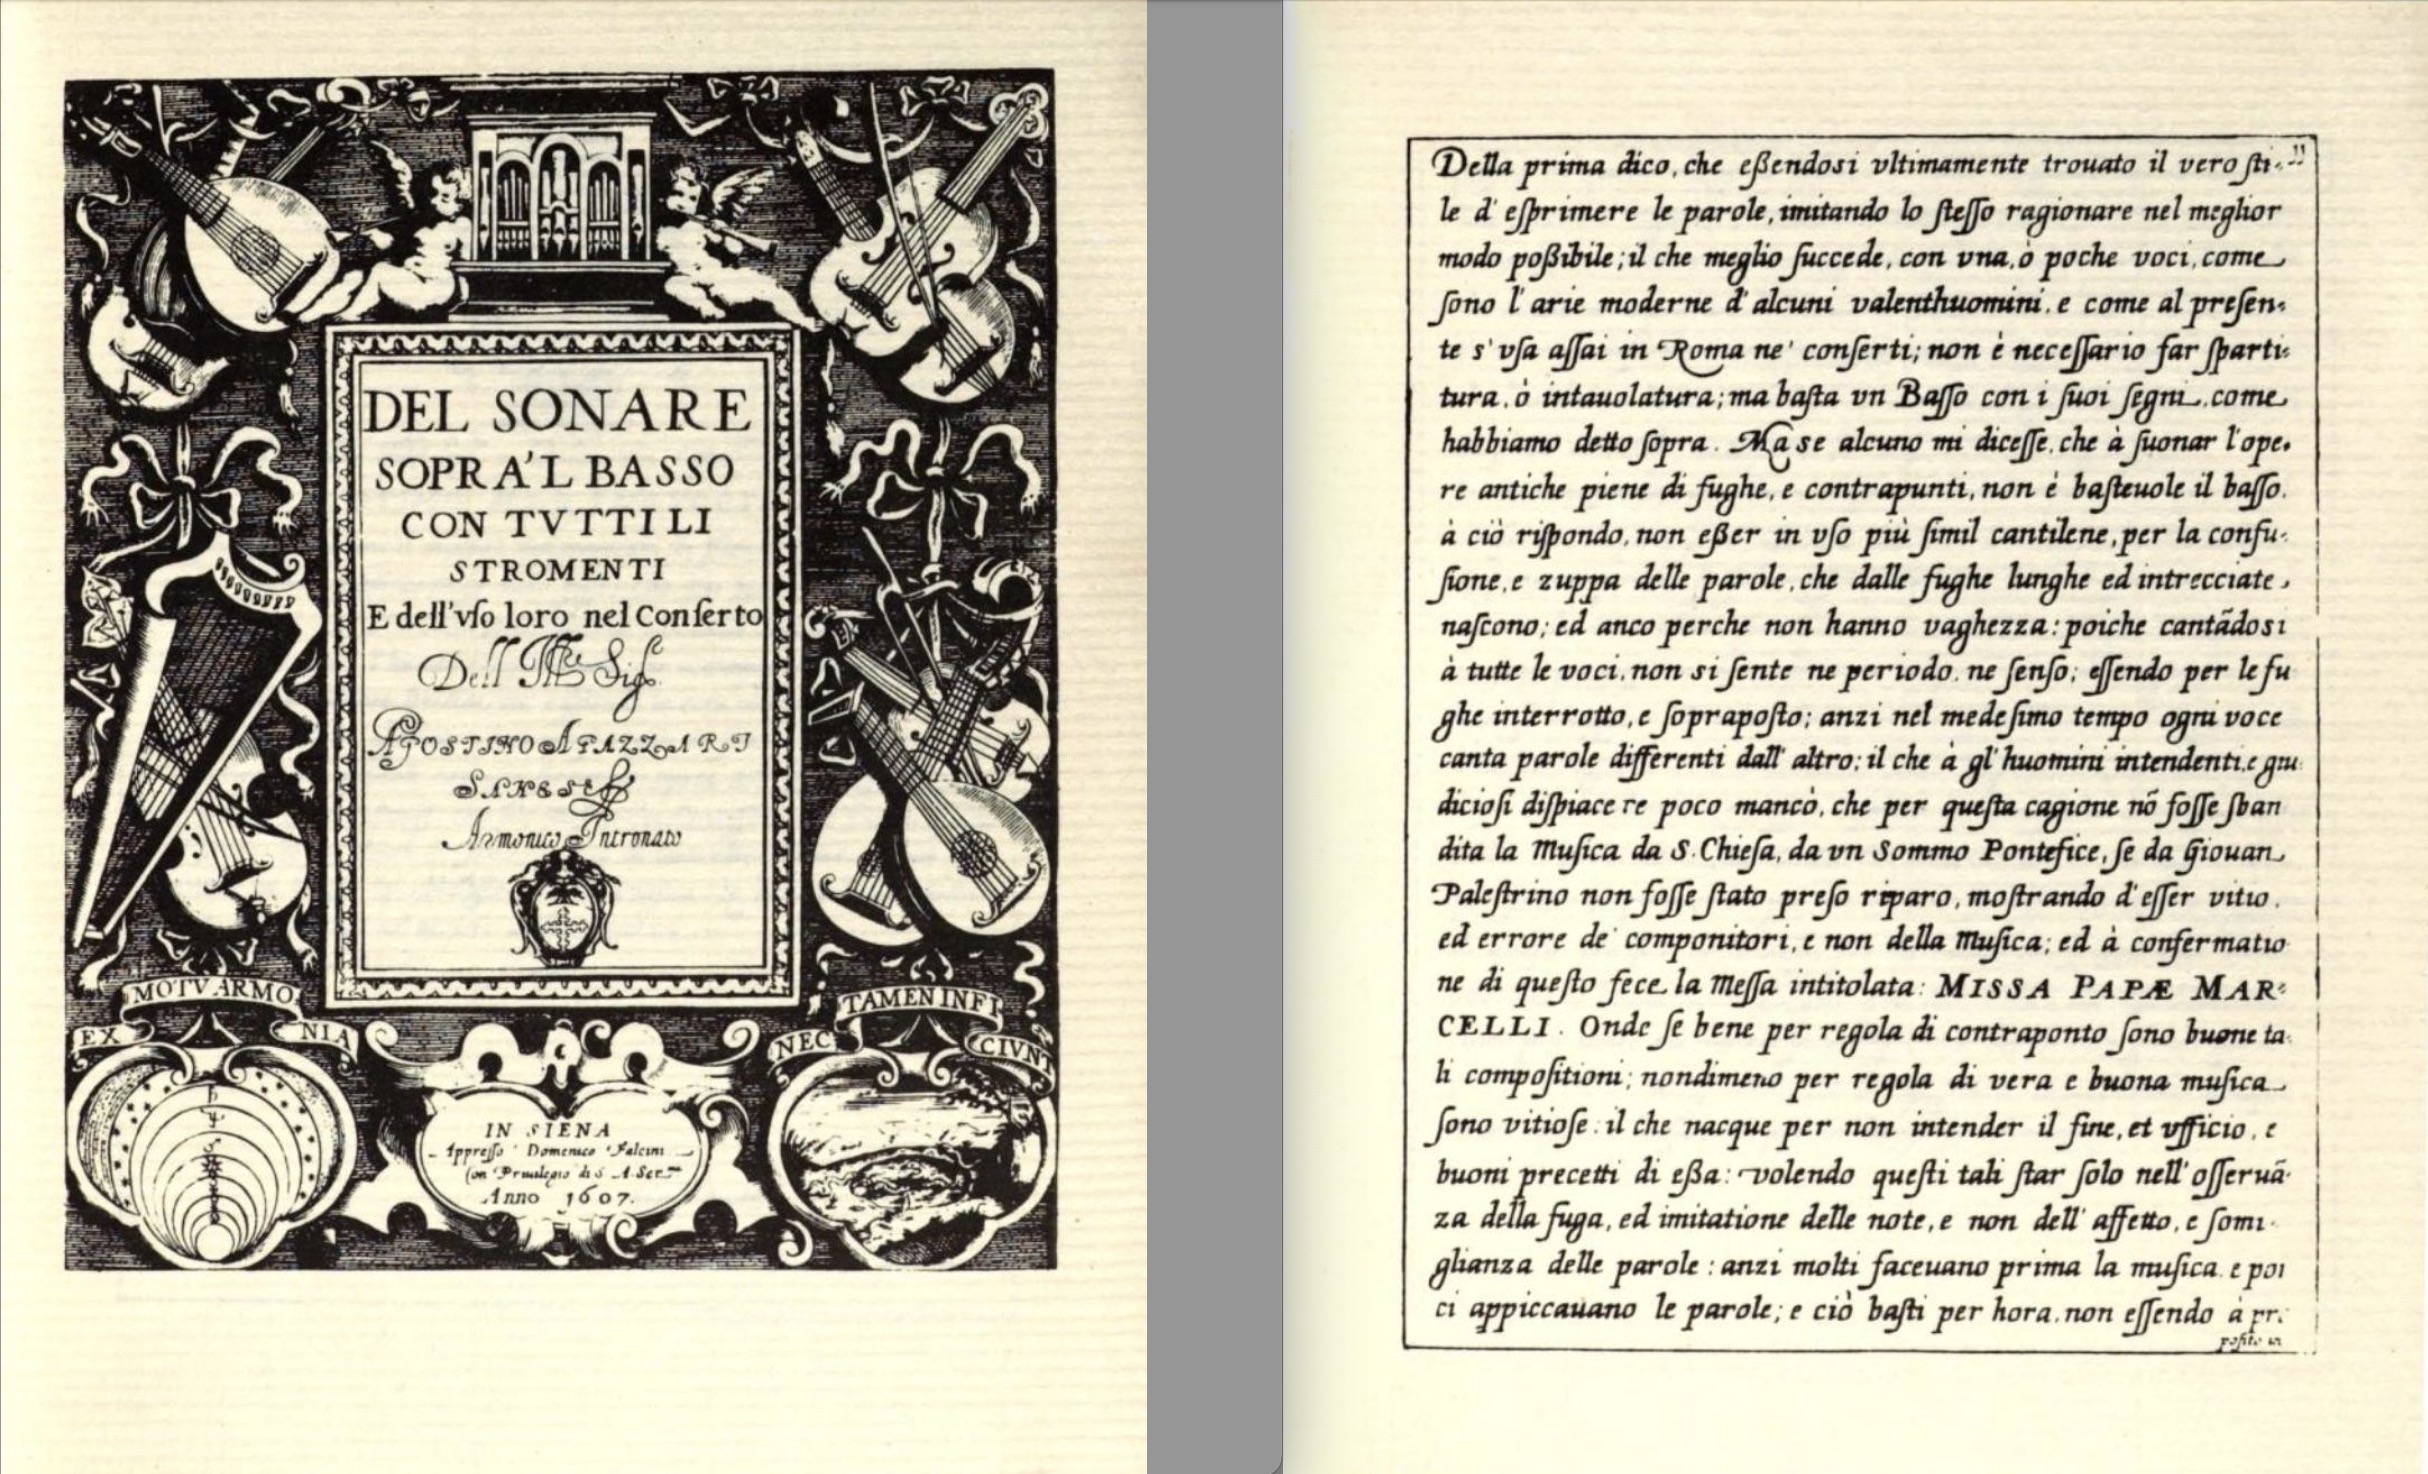 DEL SONARE
SOPRA'L BASSO
CON TVTTI LI
STROMENTI
E dell'vſo loro nel Conſerto
Dell' Ill.re Sig.
AGOSTINO AGAZZARI
SANESE
Armonico Intronato
EX MOTV ARMONIA
NEC TAMEN INFICIVNT
IN SIENA
Appreſſo Domenico Falcini
Con Priuilegio di S. A. Ser.ma
Anno 1607.
11
Della prima dico, che eßendosi vltimamente trouato il vero ſti-
le d' eſprimere le parole, imitando lo ſteſſo ragionare nel meglior
modo poßibile; il che meglio ſuccede, con vna, ò poche voci, come
ſono l' arie moderne d' alcuni valenthuomini, e come al preſen-
te s' vſa aſſai in Roma ne' conſerti; non è neceſſario far ſparti-
tura, ò intauolatura; ma baſta vn Baſſo con i ſuoi ſegni, come
habbiamo detto ſopra. Ma se alcuno mi diceſſe, che à ſuonar l'ope-
re antiche piene di fughe, e contrapunti, non è baſteuole il baſſo.
à ciò riſpondo, non eßer in vſo più ſimil cantilene, per la confu-
ſione, e zuppa delle parole, che dalle fughe lunghe ed intrecciate,
naſcono; ed anco perche non hanno vaghezza: poiche cantãdosi
à tutte le voci, non si ſente ne periodo, ne ſenſo; eſſendo per le fu
ghe interrotto, e ſoprapoſto; anzi nel medeſimo tempo ogni voce
canta parole differenti dall' altro; il che à gl' huomini intendenti, e giu
dicioſi diſpiace re poco mancò, che per queſta cagione nõ foſſe ſban
dita la Muſica da S. Chieſa, da vn Sommo Pontefice, ſe da Giouan
Paleſtrino non foſſe ſtato preſo riparo, moſtrando d' eſſer vitio,
ed errore de' componitori, e non della Muſica; ed à confermatio
ne di queſto fece la Meſſa intitolata: MISSA PAPÆ MAR-
CELLI. Onde ſe bene per regola di contraponto ſono buone ta-
li compoſitioni; nondimeno per regola di vera e buona muſica
ſono vitioſe: il che nacque per non intender il fine, et vfficio, e
buoni precetti di eßa: volendo queſti tali ſtar ſolo nell' oſſeruã-
za della fuga, ed imitatione delle note, e non dell' affetto, e ſomi-
glianza delle parole: anzi molti faceuano prima la muſica, e poi
ci appiccauano le parole; e ciò baſti per hora, non eſſendo à pro-
poſito in